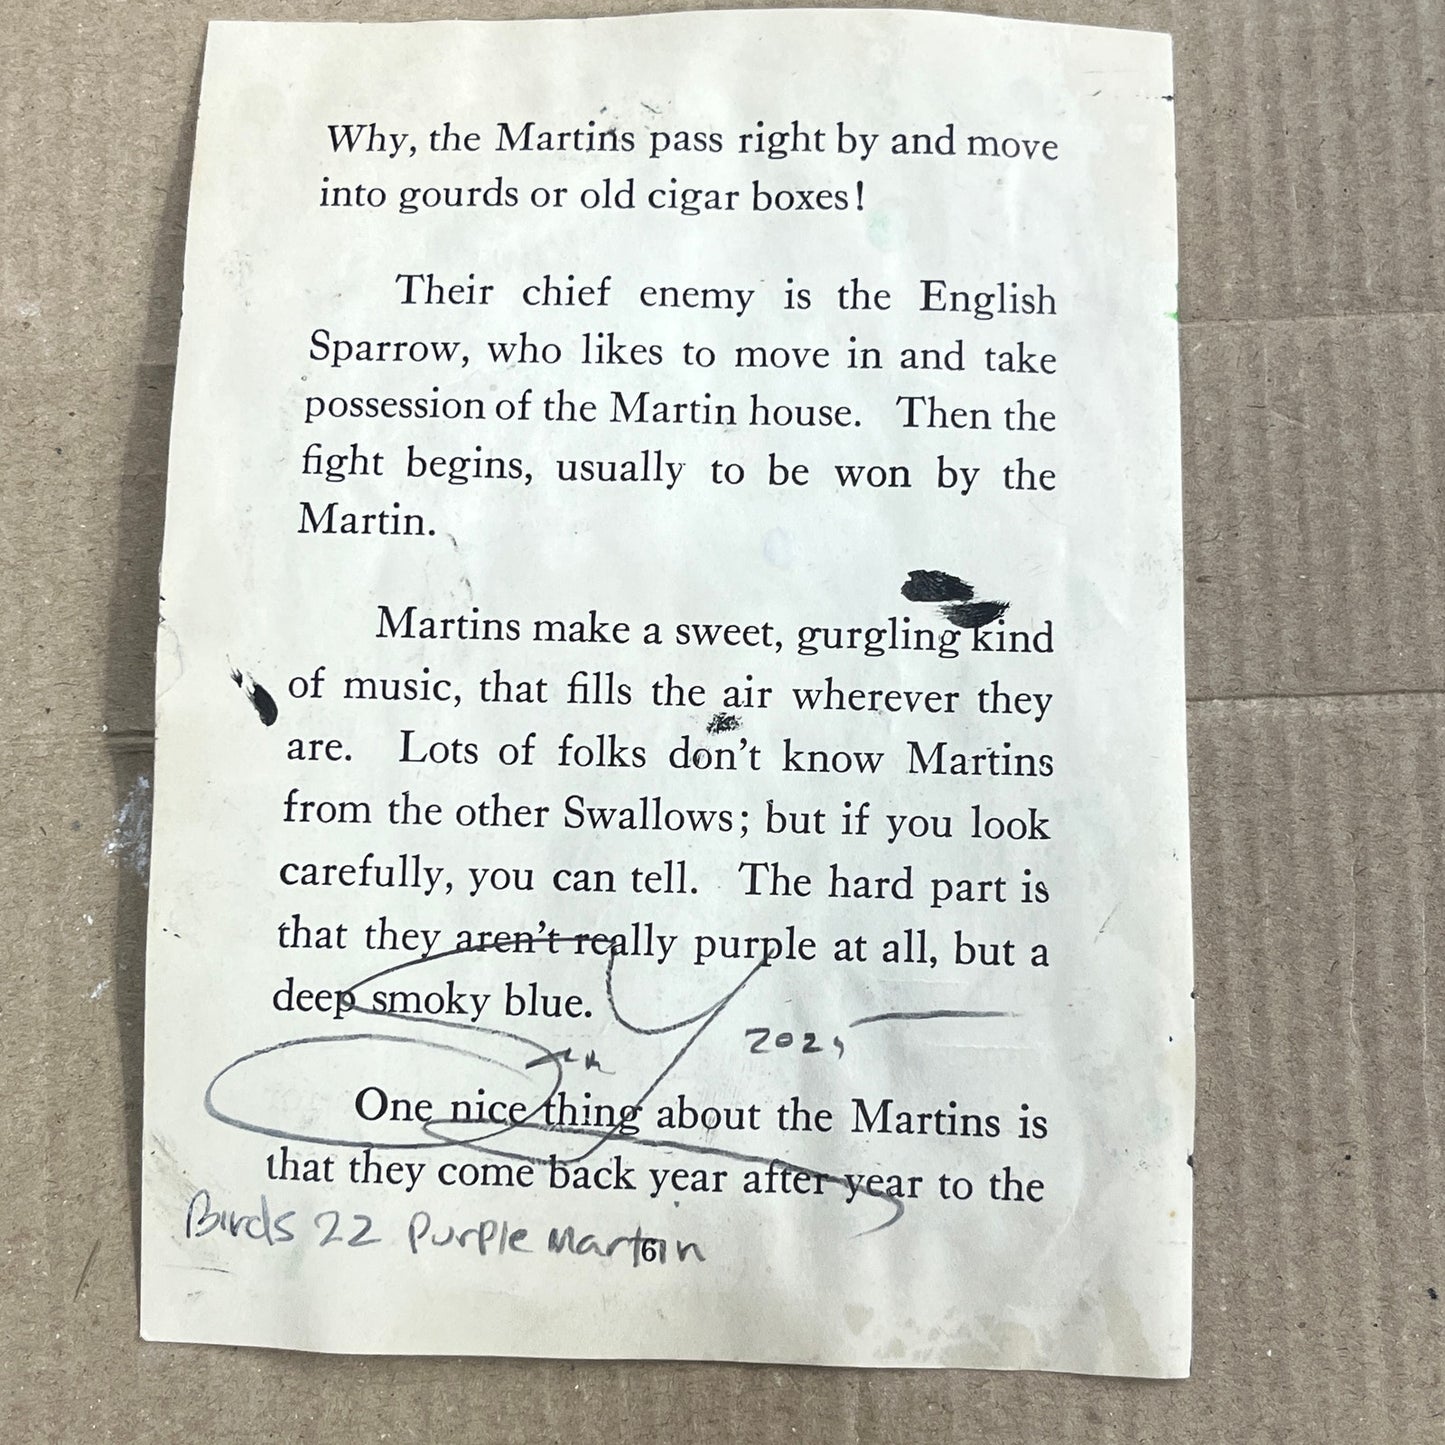 Why, the Martins pass right by and move
into gourds or old cigar boxes!
Their chief enemy is the English
Sparrow, who likes to move in and take
possession of the Martin house. Then the
fight begins, usually to be won by the
Martin.
Martins make a sweet, gurgling kind
of music, that fills the air wherever they
are. Lots of folks don't know Martins
from the other Swallows; but if you look
carefully, you can tell. The hard part is
that they aren't really purple at all, but a
deep smoky blue.
One nice thing about the Martins is
that they come back year after year to the
Birds 22 Purple Martin
61